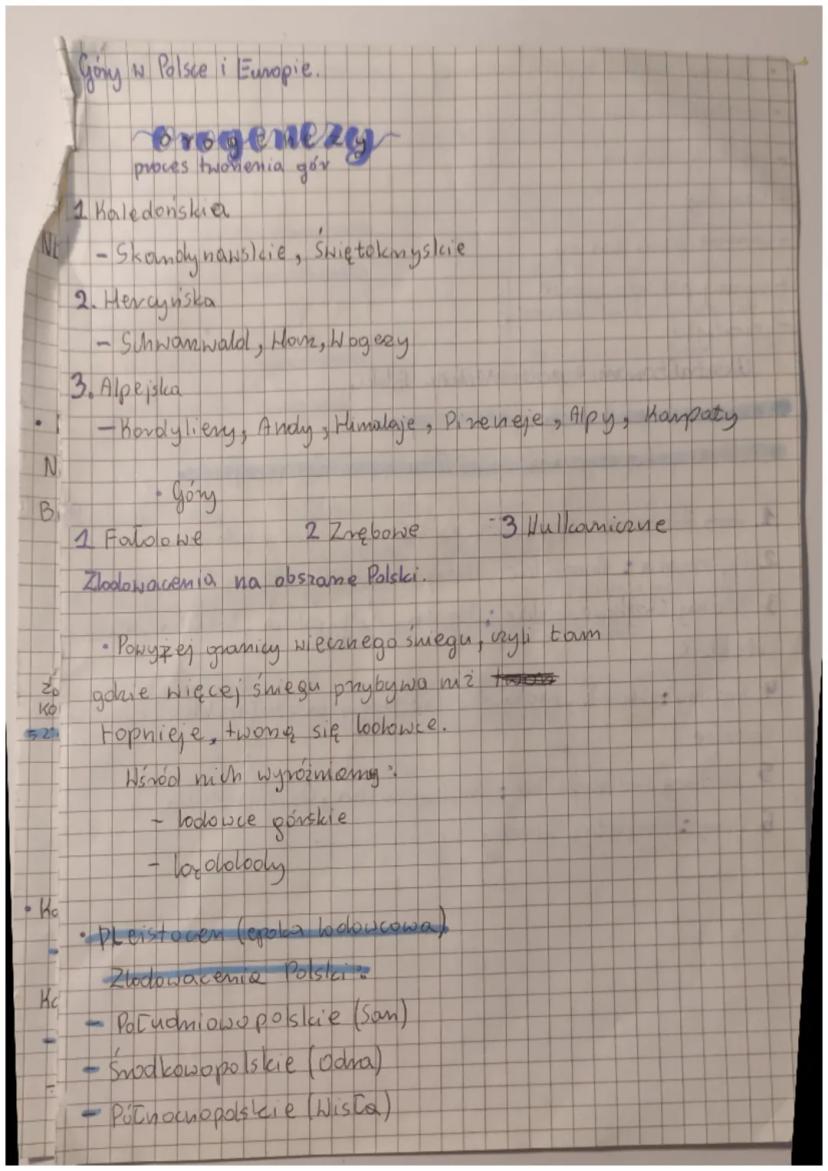 Góry w Polsce i Europie.
orogenezy
proces tworzenia gór
1 Kaledońskia
- Skandynawskie, Świętokrzyskie
2. Hercyńska
- Schwarzwald, Harz, Wogezy
3. Alpejska
- Kordyliery, Andy, Himalaje, Pireneje, Alpy, Karpaty
N
B
• Góry
1 Fałdowe 2 Zrębowe 3 Wulkaniczne
Zlodowacenia na obszarze Polski.
• Powyżej granicy wiecznego śniegu, czyli tam
gdzie więcej śniegu przybywa niż
topnieje, tworzą się lodowce.
Wśród nich wyróżniamy:
- lodowce górskie
- lądolody
• Pleistocen (epoka lodowcowa)
Zlodowacenia Polski:
- Południowopolskie (San)
- Środkowopolskie (Odra)
- Północnopolskie (Wisła)